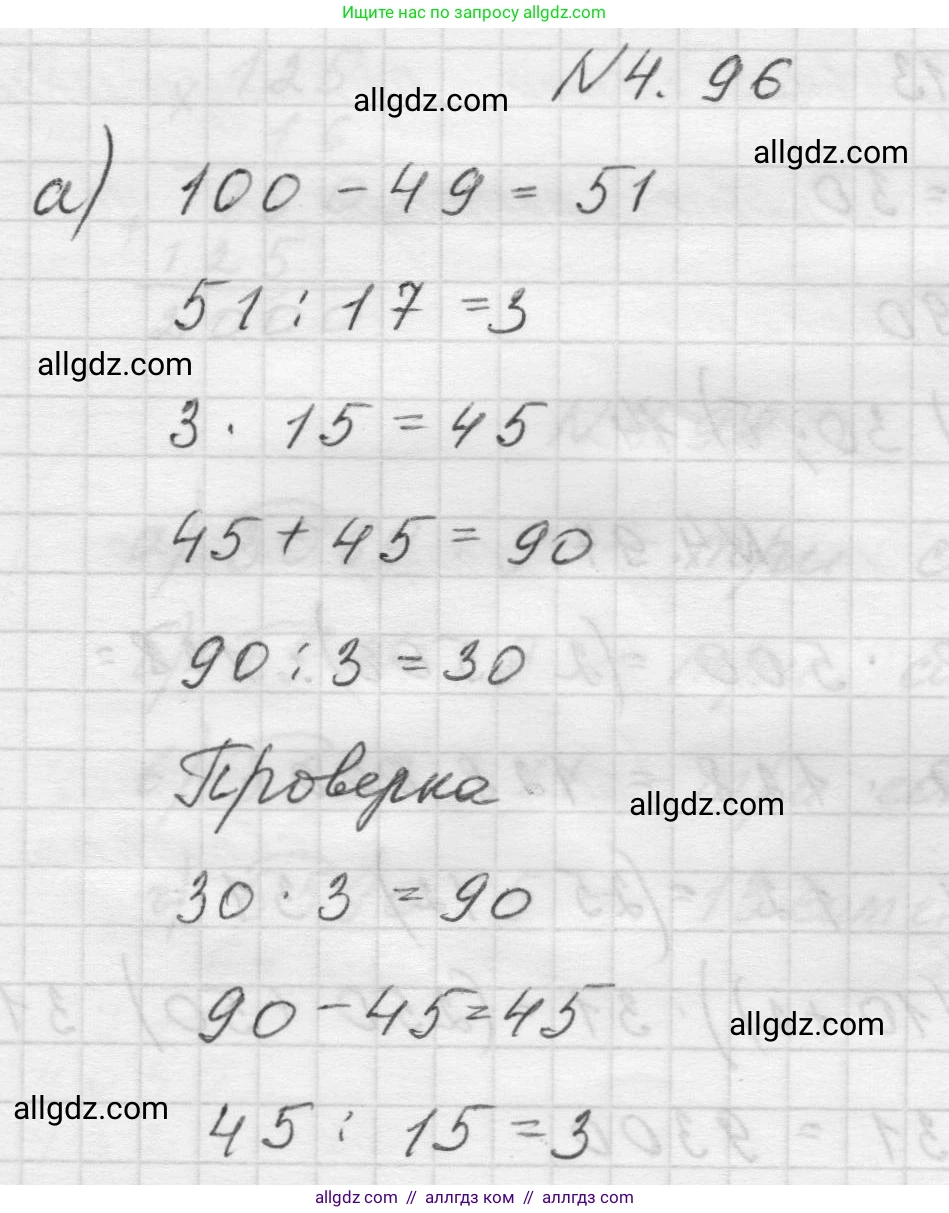 Ищите нас по запросу allgdz.com
N 4. 96
allgdz.com
allgdz.com
а) 100 - 49 = 51
51 : 17 = 3
allgdz.com
3 · 15 = 45
45 + 45 = 90
90 : 3 = 30
Проверка
allgdz.com
30 · 3 = 90
90 - 45 = 45
allgdz.com
allgdz.com
45 : 15 = 3
allgdz.com // аллгдз ком // аллгдз.com